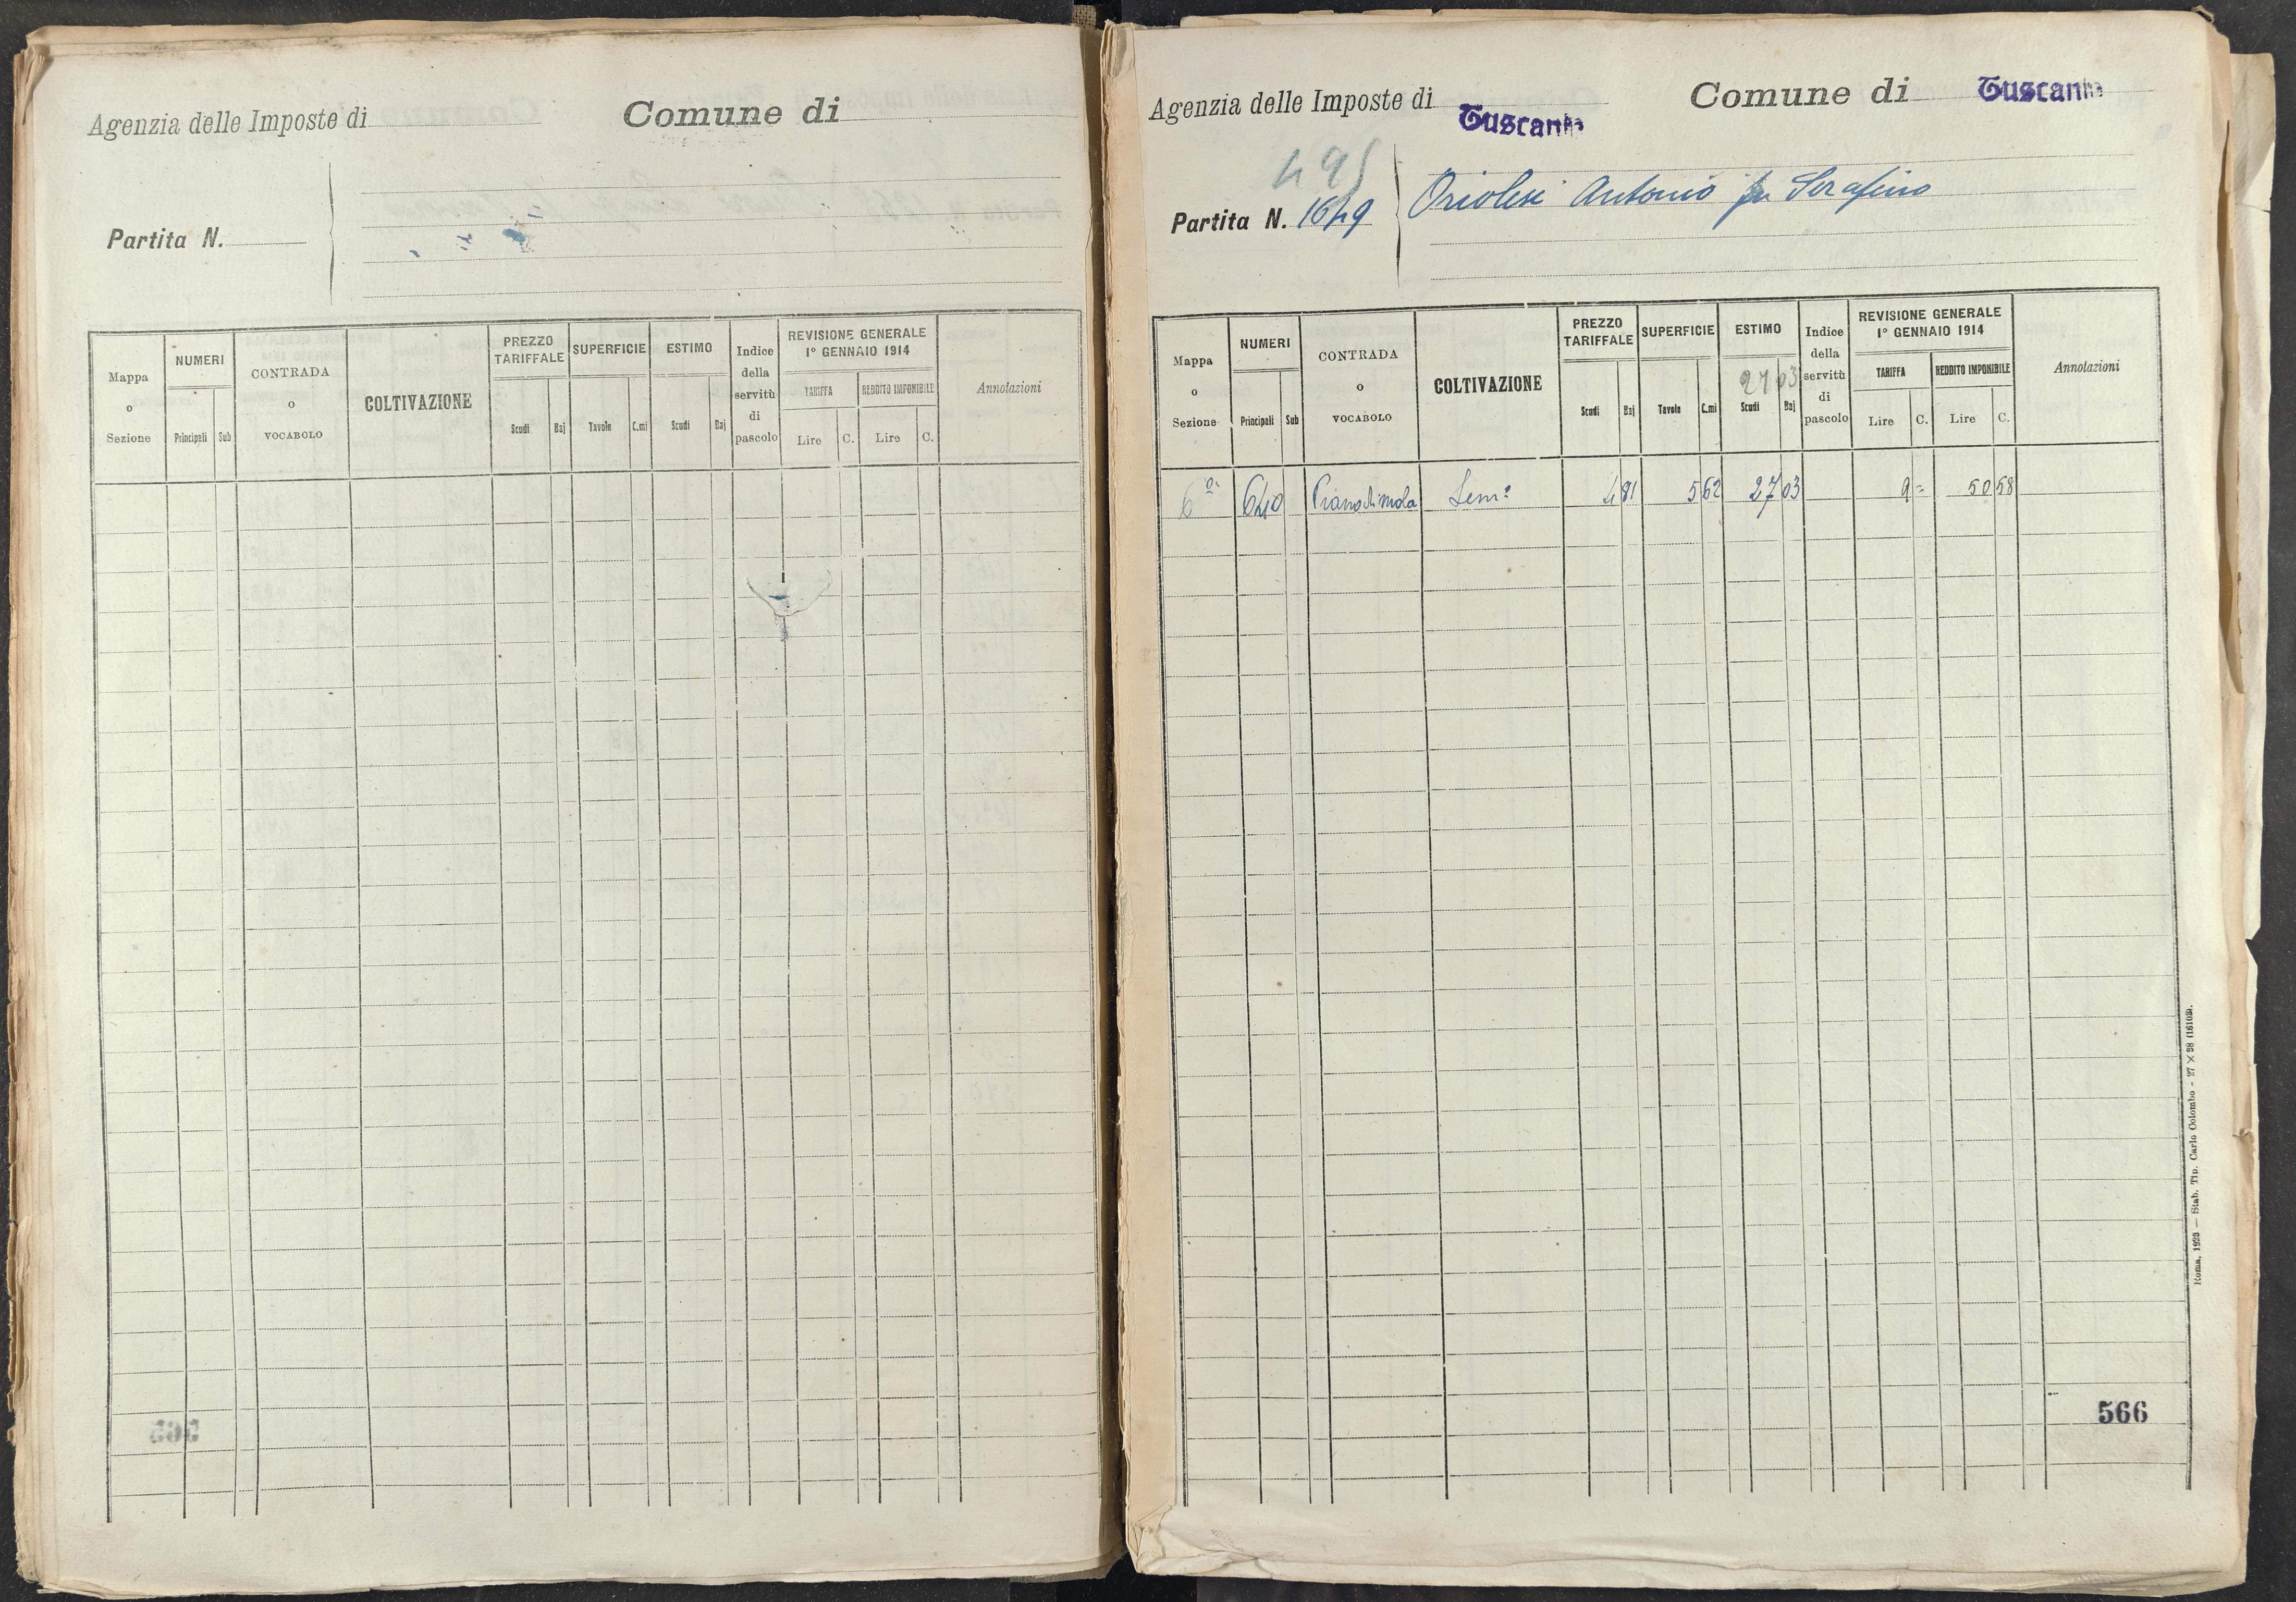 Agenzia delle Imposte di
Comune di
Partita N.
Mappa o Sezione
NUMERI
Principali
Sub
CONTRADA o VOCABOLO
COLTIVAZIONE
PREZZO TARIFFALE
Scudi
Baj
SUPERFICIE
Tavole
C.mi
ESTIMO
Scudi
Baj
Indice della servitù di pascolo
REVISIONE GENERALE
1° GENNAIO 1914
TARIFFA
REDDITO IMPONIBILE
Lire
C.
Lire
C.
Annotazioni
Agenzia delle Imposte di Tuscania
Comune di Tuscania
495
Partita N. 1649
Antonio fu Serafino
Mappa o Sezione
NUMERI
Principali
Sub
CONTRADA o VOCABOLO
COLTIVAZIONE
PREZZO TARIFFALE
Scudi
Baj
SUPERFICIE
Tavole
C.mi
ESTIMO
27 03
Scudi
Baj
Indice della servitù di pascolo
REVISIONE GENERALE
1° GENNAIO 1914
TARIFFA
REDDITO IMPONIBILE
Lire
C.
Lire
C.
Annotazioni
6a 640 Piano di mola Semo 4 81 5 62 27 03 9 = 50 58
566
Roma, 1923 — Stab. Tip. Carlo Colombo - 27 × 38 (16103).